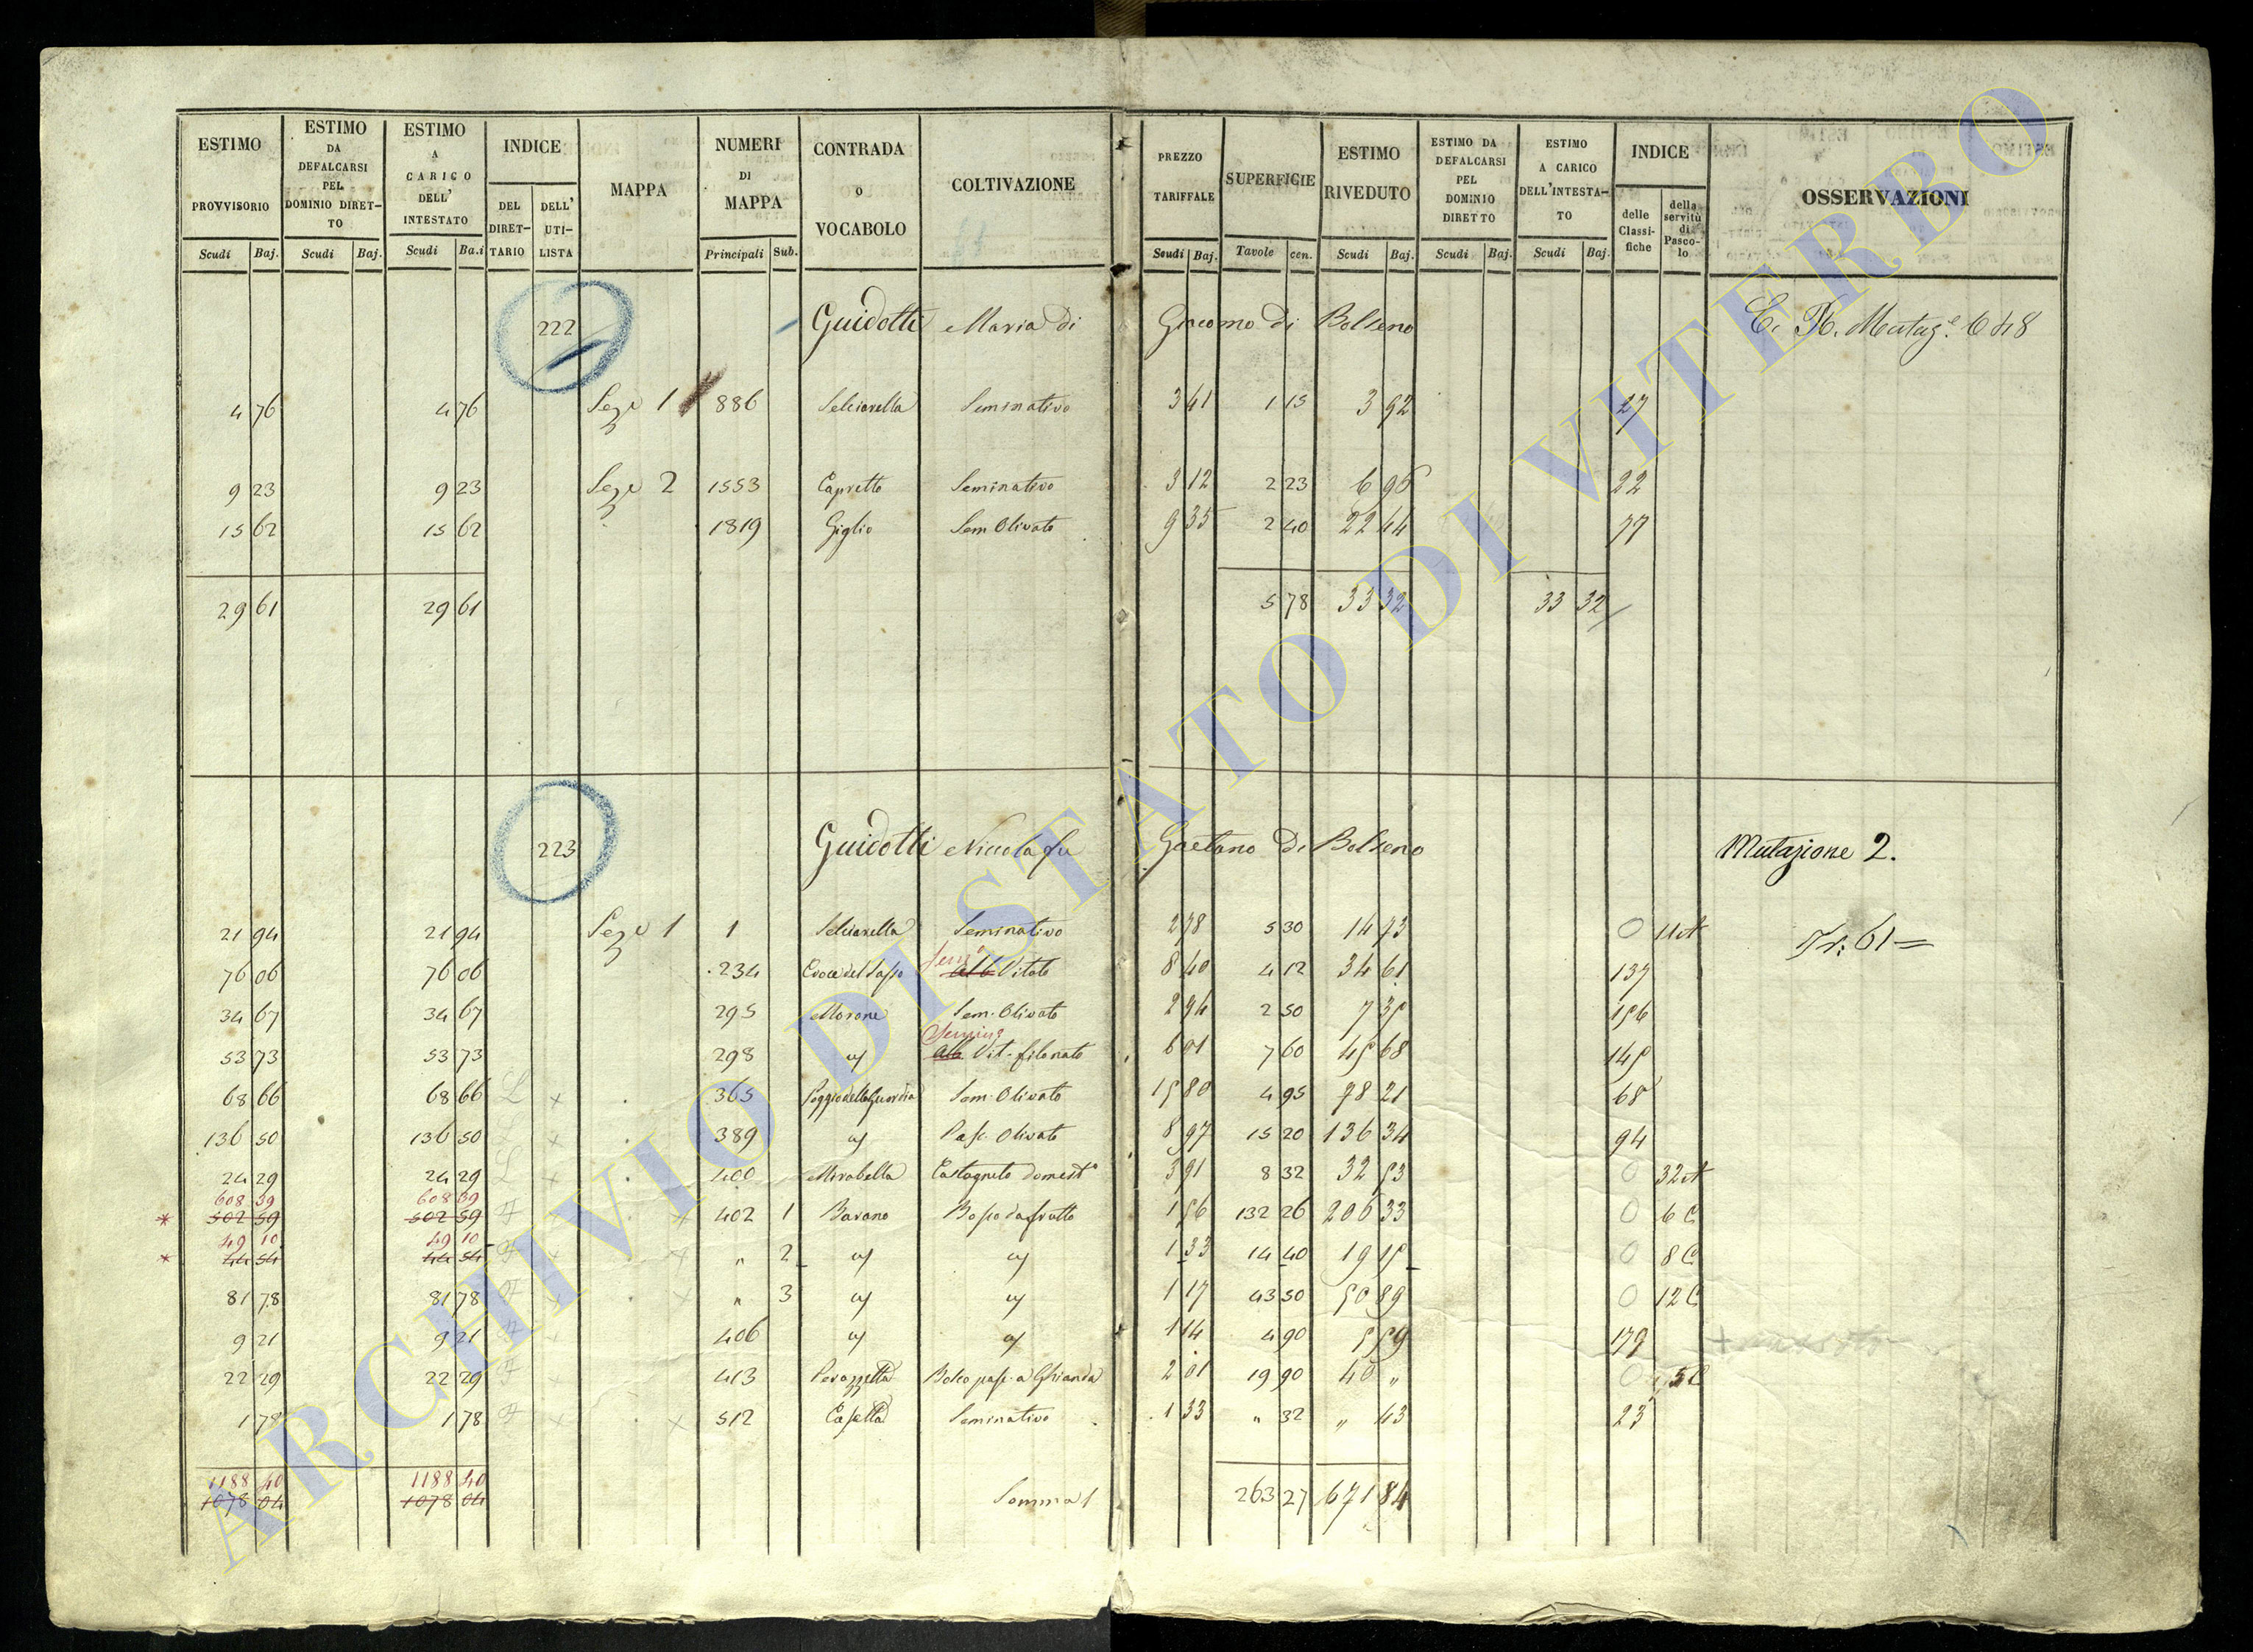 ESTIMO PROVVISORIO Scudi Baj.
ESTIMO DA DEFALCARSI PEL DOMINIO DIRET- TO Scudi Baj.
ESTIMO A CARICO DELL' INTESTATO Scudi Ba.i
INDICE DEL DIRET- TARIO DELL' UTI- LISTA
MAPPA
NUMERI DI MAPPA Principali Sub.
CONTRADA o VOCABOLO
COLTIVAZIONE
PREZZO TARIFFALE Scudi Baj.
SUPERFICIE Tavole cen.
ESTIMO RIVEDUTO Scudi Baj.
ESTIMO DA DEFALCARSI PEL DOMINIO DIRETTO Scudi Baj.
ESTIMO A CARICO DELL'INTESTA- TO Scudi Baj.
INDICE delle Classi- fiche della servitù di Pasco- lo
OSSERVAZIONI
222 Guidotti Maria di Giacomo di Bolseno
4 76 4 76 Sez.e 1 886 Selciarella Seminativo 3 41 1 15 3 92 27
9 23 9 23 Sez.e 2 1553 Capretto Seminativo 3 12 2 23 6 96 22
15 62 15 62 1819 Giglio Sem Olivato 9 35 2 40 22 44 77
29 61 29 61 5 78 33 32 33 32
223 Guidotti Niccola fu Gaetano di Bolseno Mutazione 2.
21 94 21 94 Sez.e 1 1 Selciarella Seminativo 2 78 5 30 14 73 0 11A Tr: 61=
76 06 76 06 234 Croce del Sasso Vitato 8 40 4 12 34 61 137
34 67 34 67 295 Morone Sem. Olivato 2 94 2 50 7 35 156
Semin
53 73 53 73 298 Alb Vit. filonato 6 01 7 60 45 68 145
68 66 68 66 365 Poggio della Guardia Sem. Olivato 15 80 4 95 78 21 68
136 50 136 50 389 Pasc. Olivato 8 97 15 20 136 34 94
24 29 24 29 400 Mirabella Castagneto domest.o 3 91 8 32 32 53 0 32A
608 39 608 39
* 502 59 502 59 402 1 Barano Bosco da frutto 1 56 132 26 206 33 0 6C
49 10 49 10
* 44 54 44 54 " 2 1 33 14 40 19 15 0 8C
81 78 81 78 " 3 1 17 43 50 50 89 0 12C
9 21 9 21 406 1 14 4 90 5 59 179
22 29 22 29 413 Perazzetta Bosco pasc. a Ghianda 2 01 19 90 40 " 0
1 78 1 78 512 Casetta Seminativo 1 33 " 32 " 43 23
1188 40 1188 40
1078 04 1078 04 Somma 263 27 671 84
ARCHIVIO DI STATO DI VITERBO